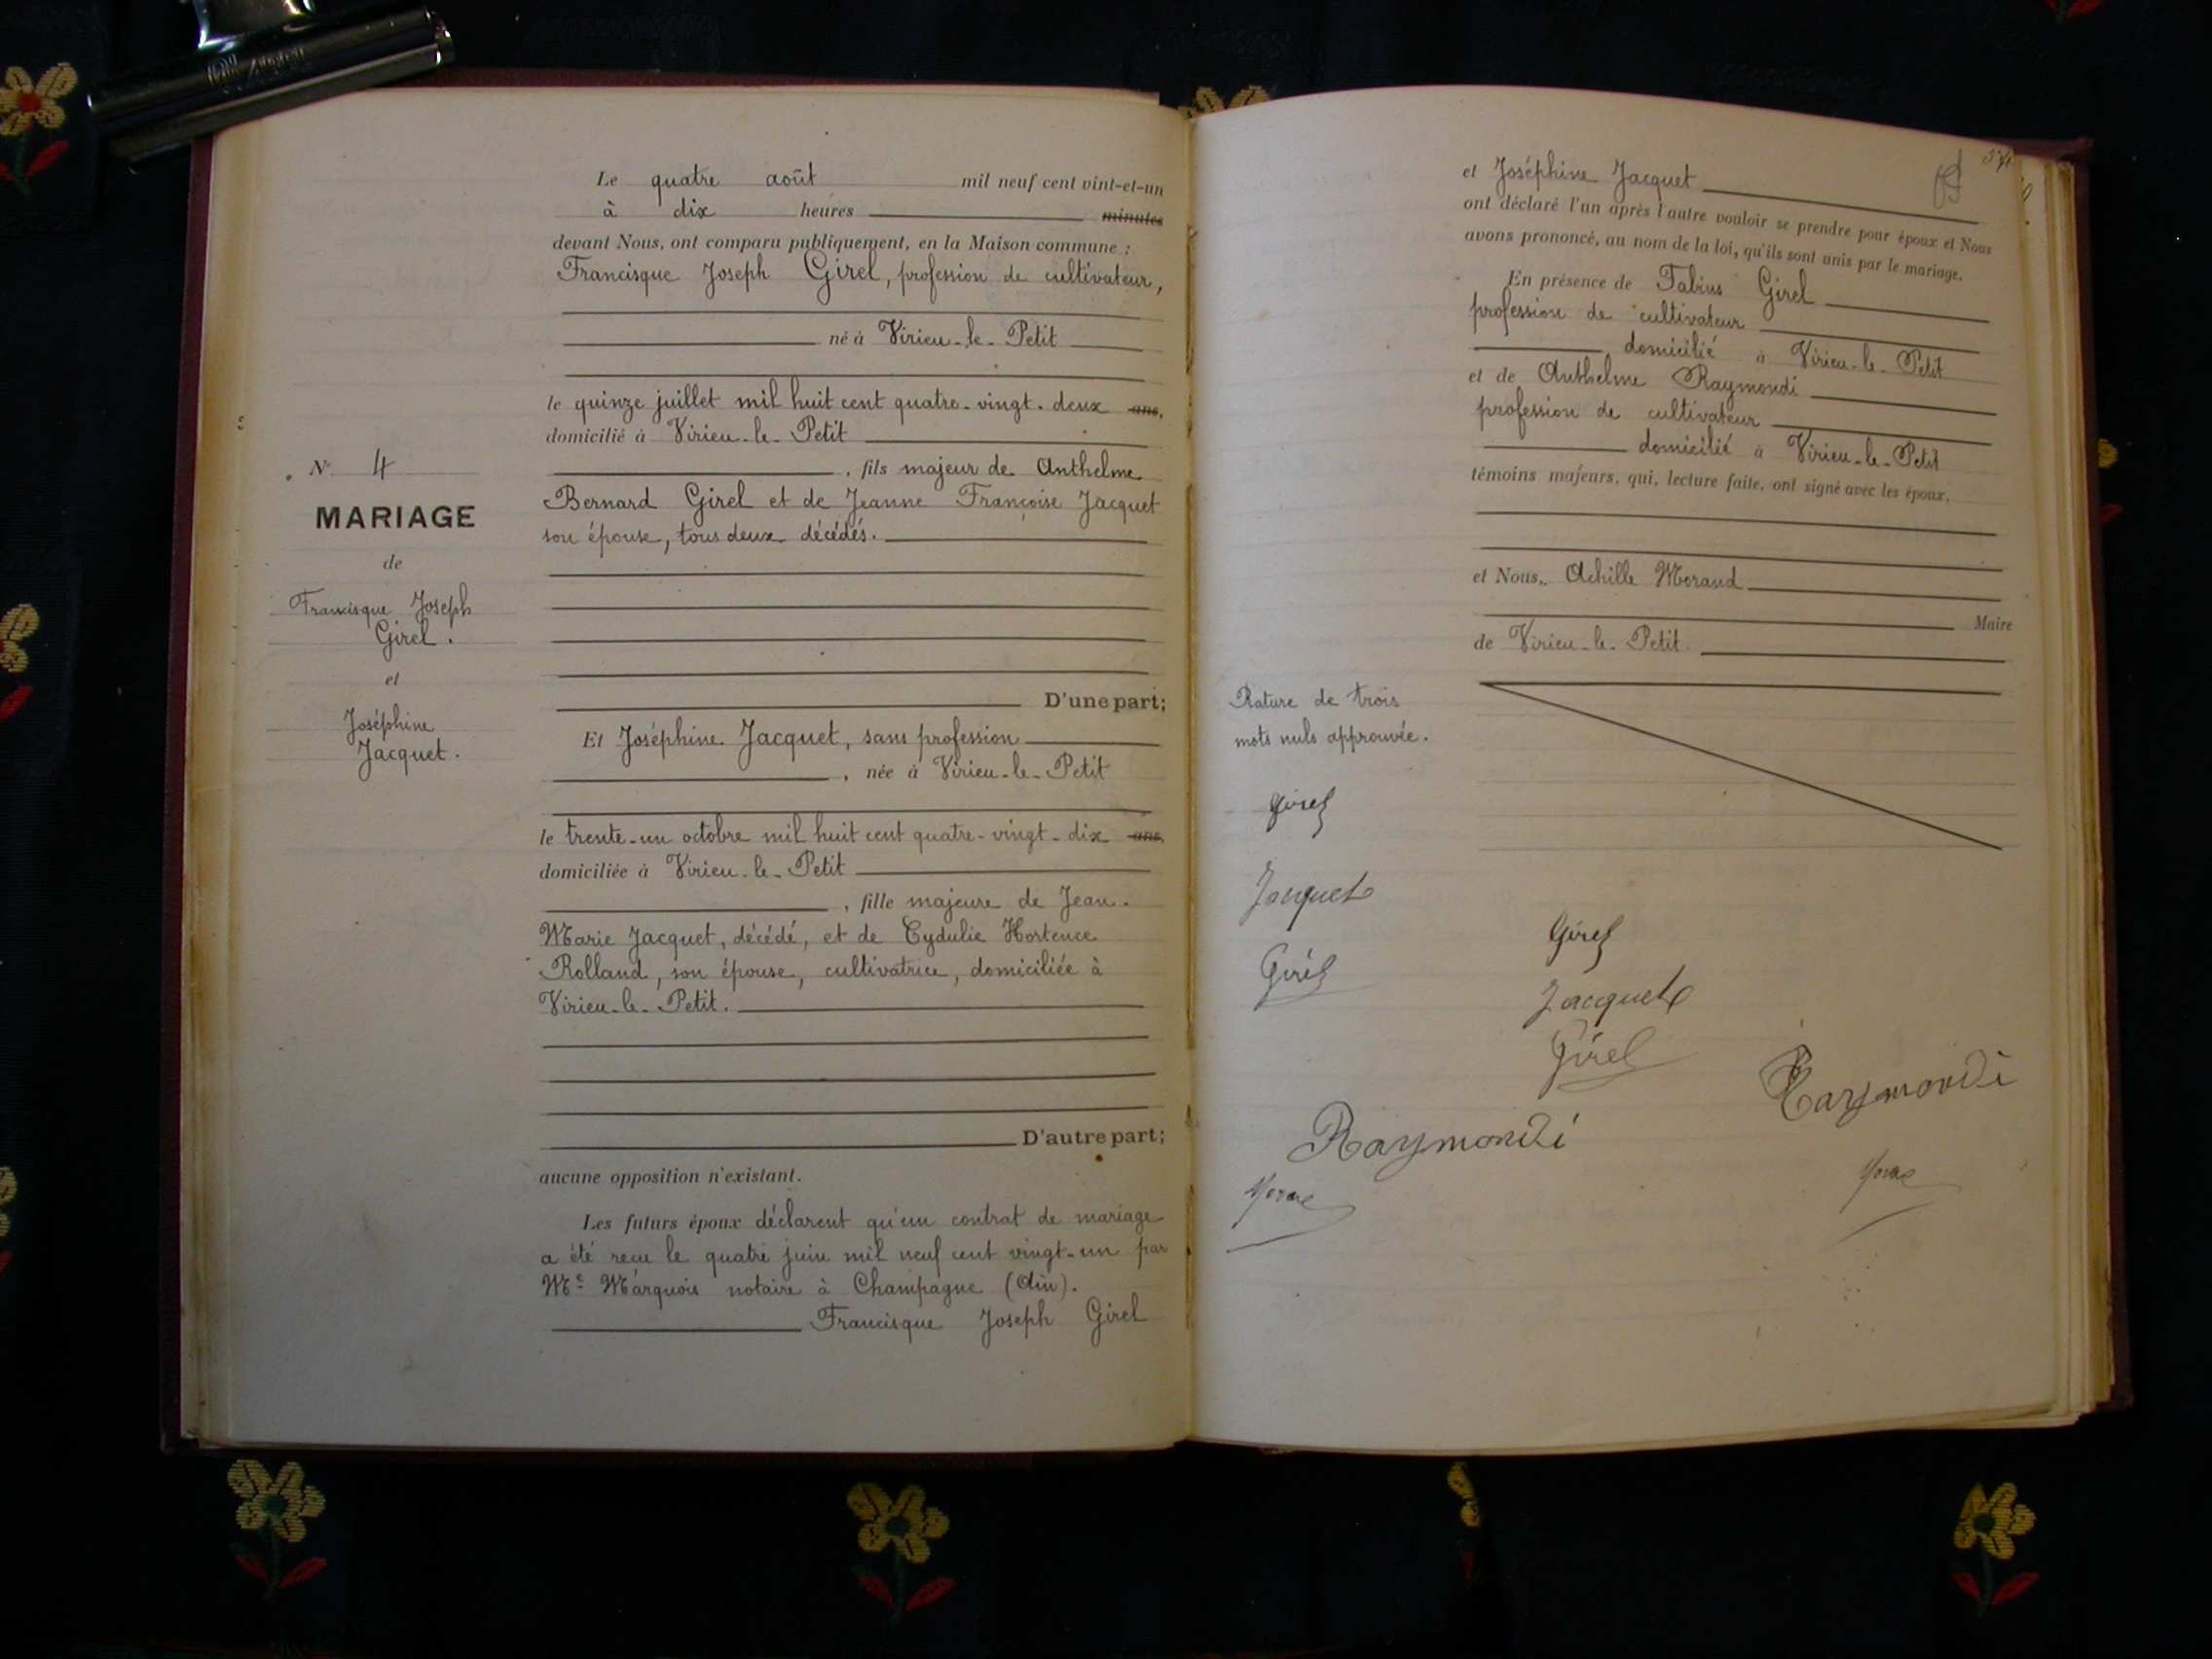 N° 4
MARIAGE
de
Francisque Joseph
Girel.
et
Joséphine
Jacquet.
Le quatre août mil neuf cent vint-et-un
à dix heures minutes
devant Nous, ont comparu publiquement, en la Maison commune :
Francisque Joseph Girel, profession de cultivateur,
né à Virieu-le-Petit
le quinze juillet mil huit cent quatre-vingt-deux ans,
domicilié à Virieu-le-Petit
, fils majeur de Anthelme
Bernard Girel et de Jeanne Françoise Jacquet
son épouse, tous deux décédés.
D'une part;
Et Joséphine Jacquet, sans profession
, née à Virieu-le-Petit
le trente-un octobre mil huit cent quatre-vingt-dix ans,
domiciliée à Virieu-le-Petit
, fille majeure de Jean-
Marie Jacquet, décédé, et de Cydulie Hortence
Rolland, son épouse, cultivatrice, domiciliée à
Virieu-le-Petit.
D'autre part;
aucune opposition n'existant.
Les futurs époux déclarent qu'un contrat de mariage
a été recu le quatre juin mil neuf cent vingt-un par
Me Marquois notaire à Champagne (Ain).
Francisque Joseph Girel
et Joséphine Jacquet
ont déclaré l'un après l'autre vouloir se prendre pour époux et Nous
avons prononcé, au nom de la loi, qu'ils sont unis par le mariage.
En présence de Fabius Girel
profession de cultivateur
domicilié à Virieu-le-Petit
et de Anthelme Raymondi
profession de cultivateur
domicilié à Virieu-le-Petit
témoins majeurs, qui, lecture faite, ont signé avec les époux,
et Nous, Achille Morand
Maire
de Virieu-le-Petit
Rature de trois
mots nuls approuvée.
Girel
Jacquet
Girel
Raymondi
Girel
Jacquet
Girel
Raymondi